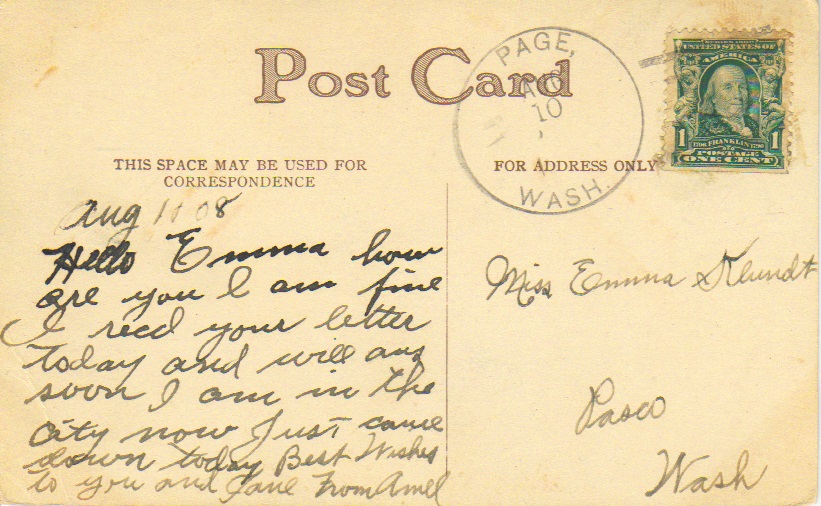 Post Card
PAGE,
AUG
10
WASH.
UNITED STATES OF
AMERICA
1 1
1706 FRANKLIN 1790
POSTAGE
ONE CENT
THIS SPACE MAY BE USED FOR
CORRESPONDENCE
FOR ADDRESS ONLY
Aug 10 08
Hello Emma how
are you I am fine
I recd your letter
today and will ans
soon I am in the
city now Just came
down today Best Wishes
to you and Jane From Amel
Miss Emma Klundt
Pasco
Wash